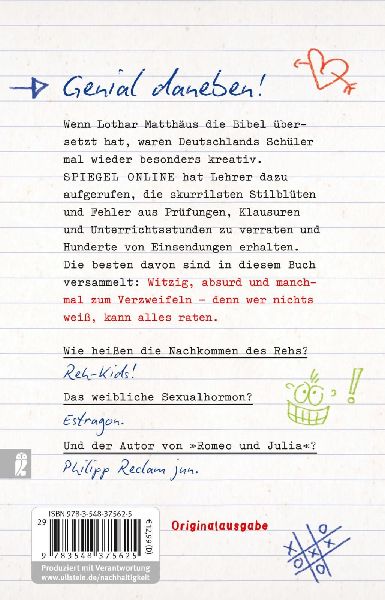 Genial daneben!
Wenn Lothar Matthäus die Bibel über-
setzt hat, waren Deutschlands Schüler
mal wieder besonders kreativ.
SPIEGEL ONLINE hat Lehrer dazu
aufgerufen, die skurrilsten Stilblüten
und Fehler aus Prüfungen, Klausuren
und Unterrichtsstunden zu verraten und
Hunderte von Einsendungen erhalten.
Die besten davon sind in diesem Buch
versammelt: Witzig, absurd und manch-
mal zum Verzweifeln – denn wer nichts
weiß, kann alles raten.
Wie heißen die Nachkommen des Rehs?
Reh-Kids!
Das weibliche Sexualhormon?
Estragon.
Und der Autor von »Romeo und Julia«?
Philipp Reclam jun.
ISBN 978-3-548-37562-5
29
€ 9,99 (D)
9 783548 375625
Produziert mit Verantwortung
www.ullstein.de/nachhaltigkeit
Originalausgabe